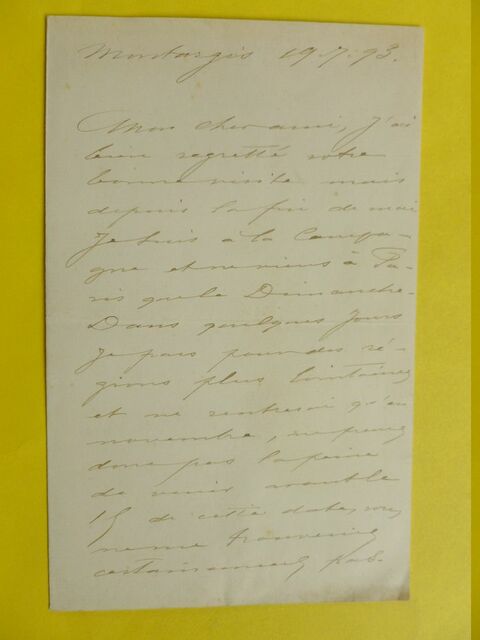 Montargis 19.7.93.
Mon cher ami, j'ai
bien regretté votre
bonne visite mais
depuis la fin de mai
je suis à la Campa-
gne et ne viens à Pa-
ris que le Dimanche.
Dans quelques jours
je pars pour des ré-
gions plus lointaines
et ne rentrerai qu'en
novembre, ne prenez
donc pas la peine
de venir avant le
15 de cette date, vous
ne me trouveriez
certainement pas.